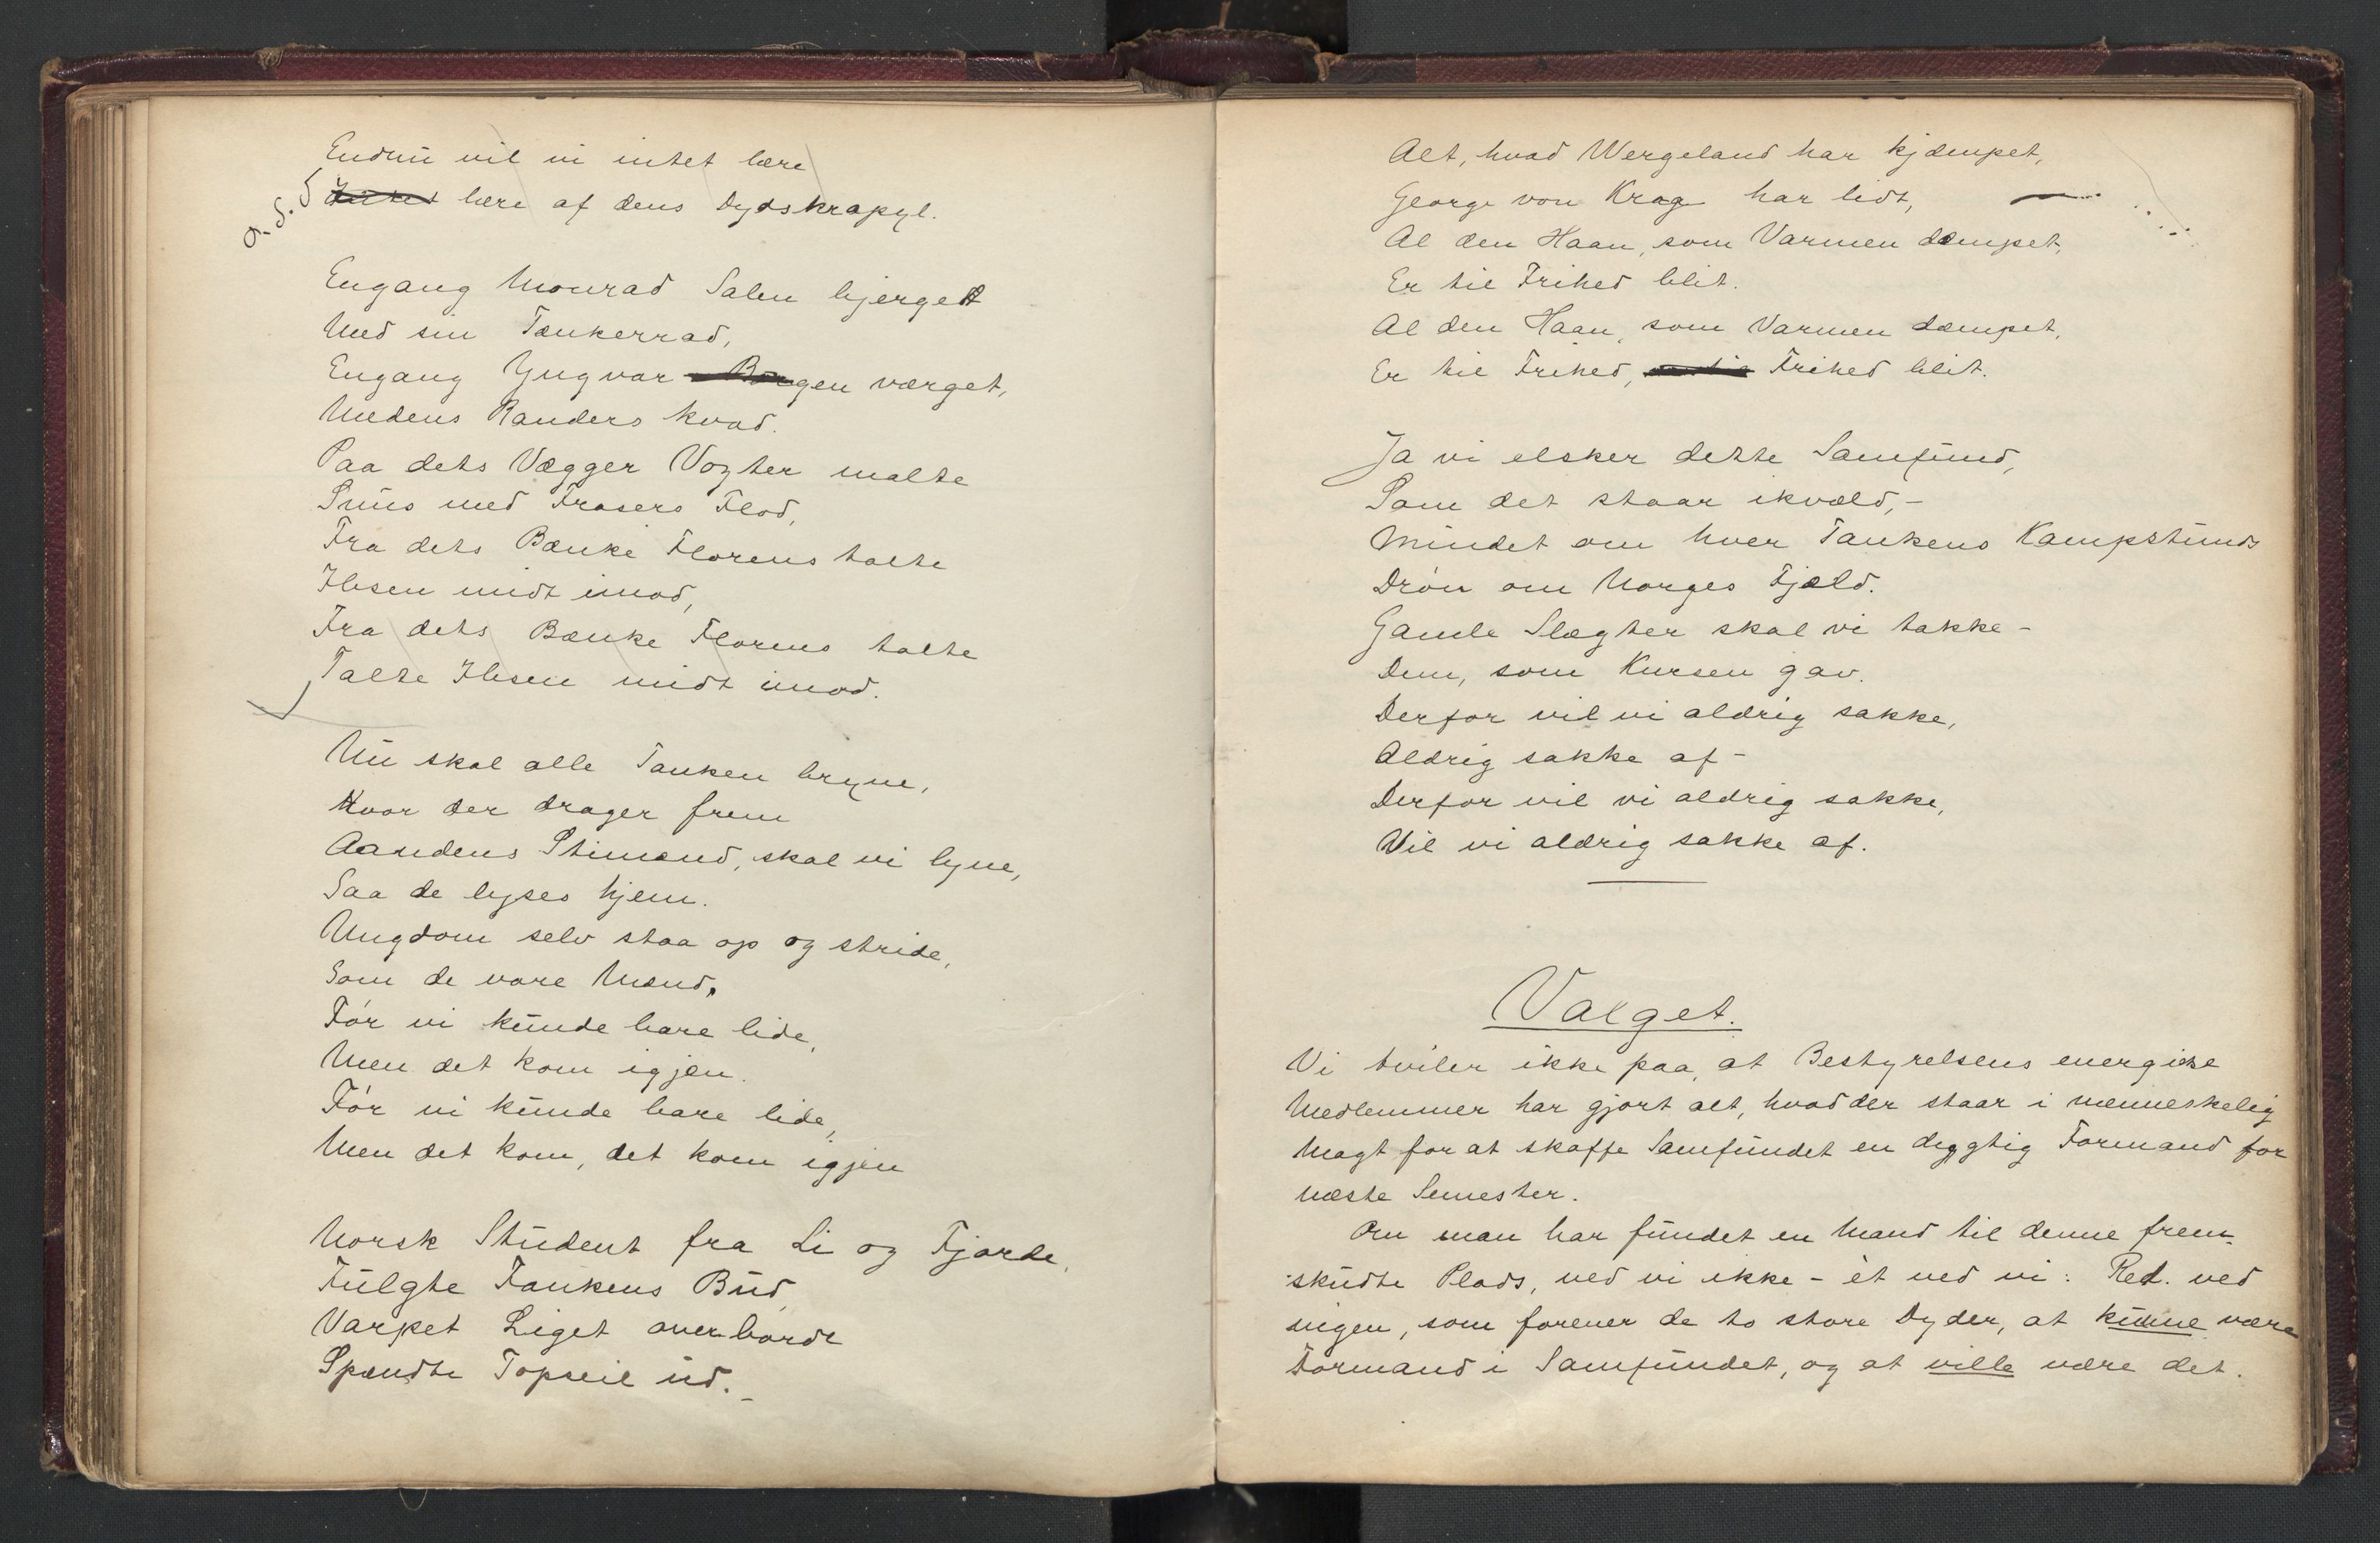 Endnu vil vi intet lære
o. s. s lære af dens Dydskrapyl.
Engang Monrad Salen bjerget
Med sin Tankerrad,
Engang Yngvar Borgen værget,
Medens Randers kvad.
Paa dets Vægger Vogter malte
Snus med Frasers Flod,
Fra dets Bænke Florens talte
Ibsen midt imod,
Fra dets Bænke Florens talte
Talte Ibsen midt imod.
Nu skal alle Tanken bryne,
Hvor der drager frem
Aandens Stimænd, skal vi lyne,
Saa de lyses hjem.
Ungdom selv staa op og stride,
Som de vare Mænd.
Før vi kunde bare lide,
Men det kom igjen.
Før vi kunde bare lide,
Men det kom, det kom igjen
Norsk Student fra Li og Fjorde,
Fulgte Tankens Bud,
Varpet Liget overborde
Spændte Topseil ud.
Alt, hvad Wergeland har kjæmpet,
George von Krag har lidt,
Al den Haan, som Varmen dæmpet,
Er til Frihed blit.
Al den Haan, som Varmen dæmpet,
Er til Frihed, Frihed blit.
Ja vi elsker dette Samfund,
Som det staar ikvæld,-
Mindet om hver Tankens Kampstund
Drøn om Norges Fjæld.
Gamle Slægter skal vi takke-
Dem, som Kursen gav.
Derfor vil vi aldrig sakke,
Aldrig sakke af-
Derfor vil vi aldrig sakke,
Vil vi aldrig sakke af.
Valget.
Vi tviler ikke paa, at Bestyrelsens energiske
Medlemmer har gjort alt, hvad der staar i menneskelig
Magt for at skaffe Samfundet en dygtig Formand for
næste Semester.
Om man har fundet en Mand til denne frem-
skudte Plads, ved vi ikke - èt ved vi: Red. ved
ingen, som forener de to store Dyder, at kunne være
Formand i Samfundet, og at ville være det.